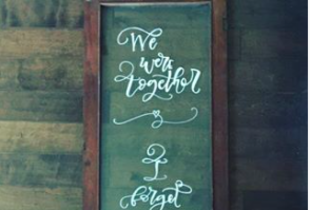 We
were
together
I
forget